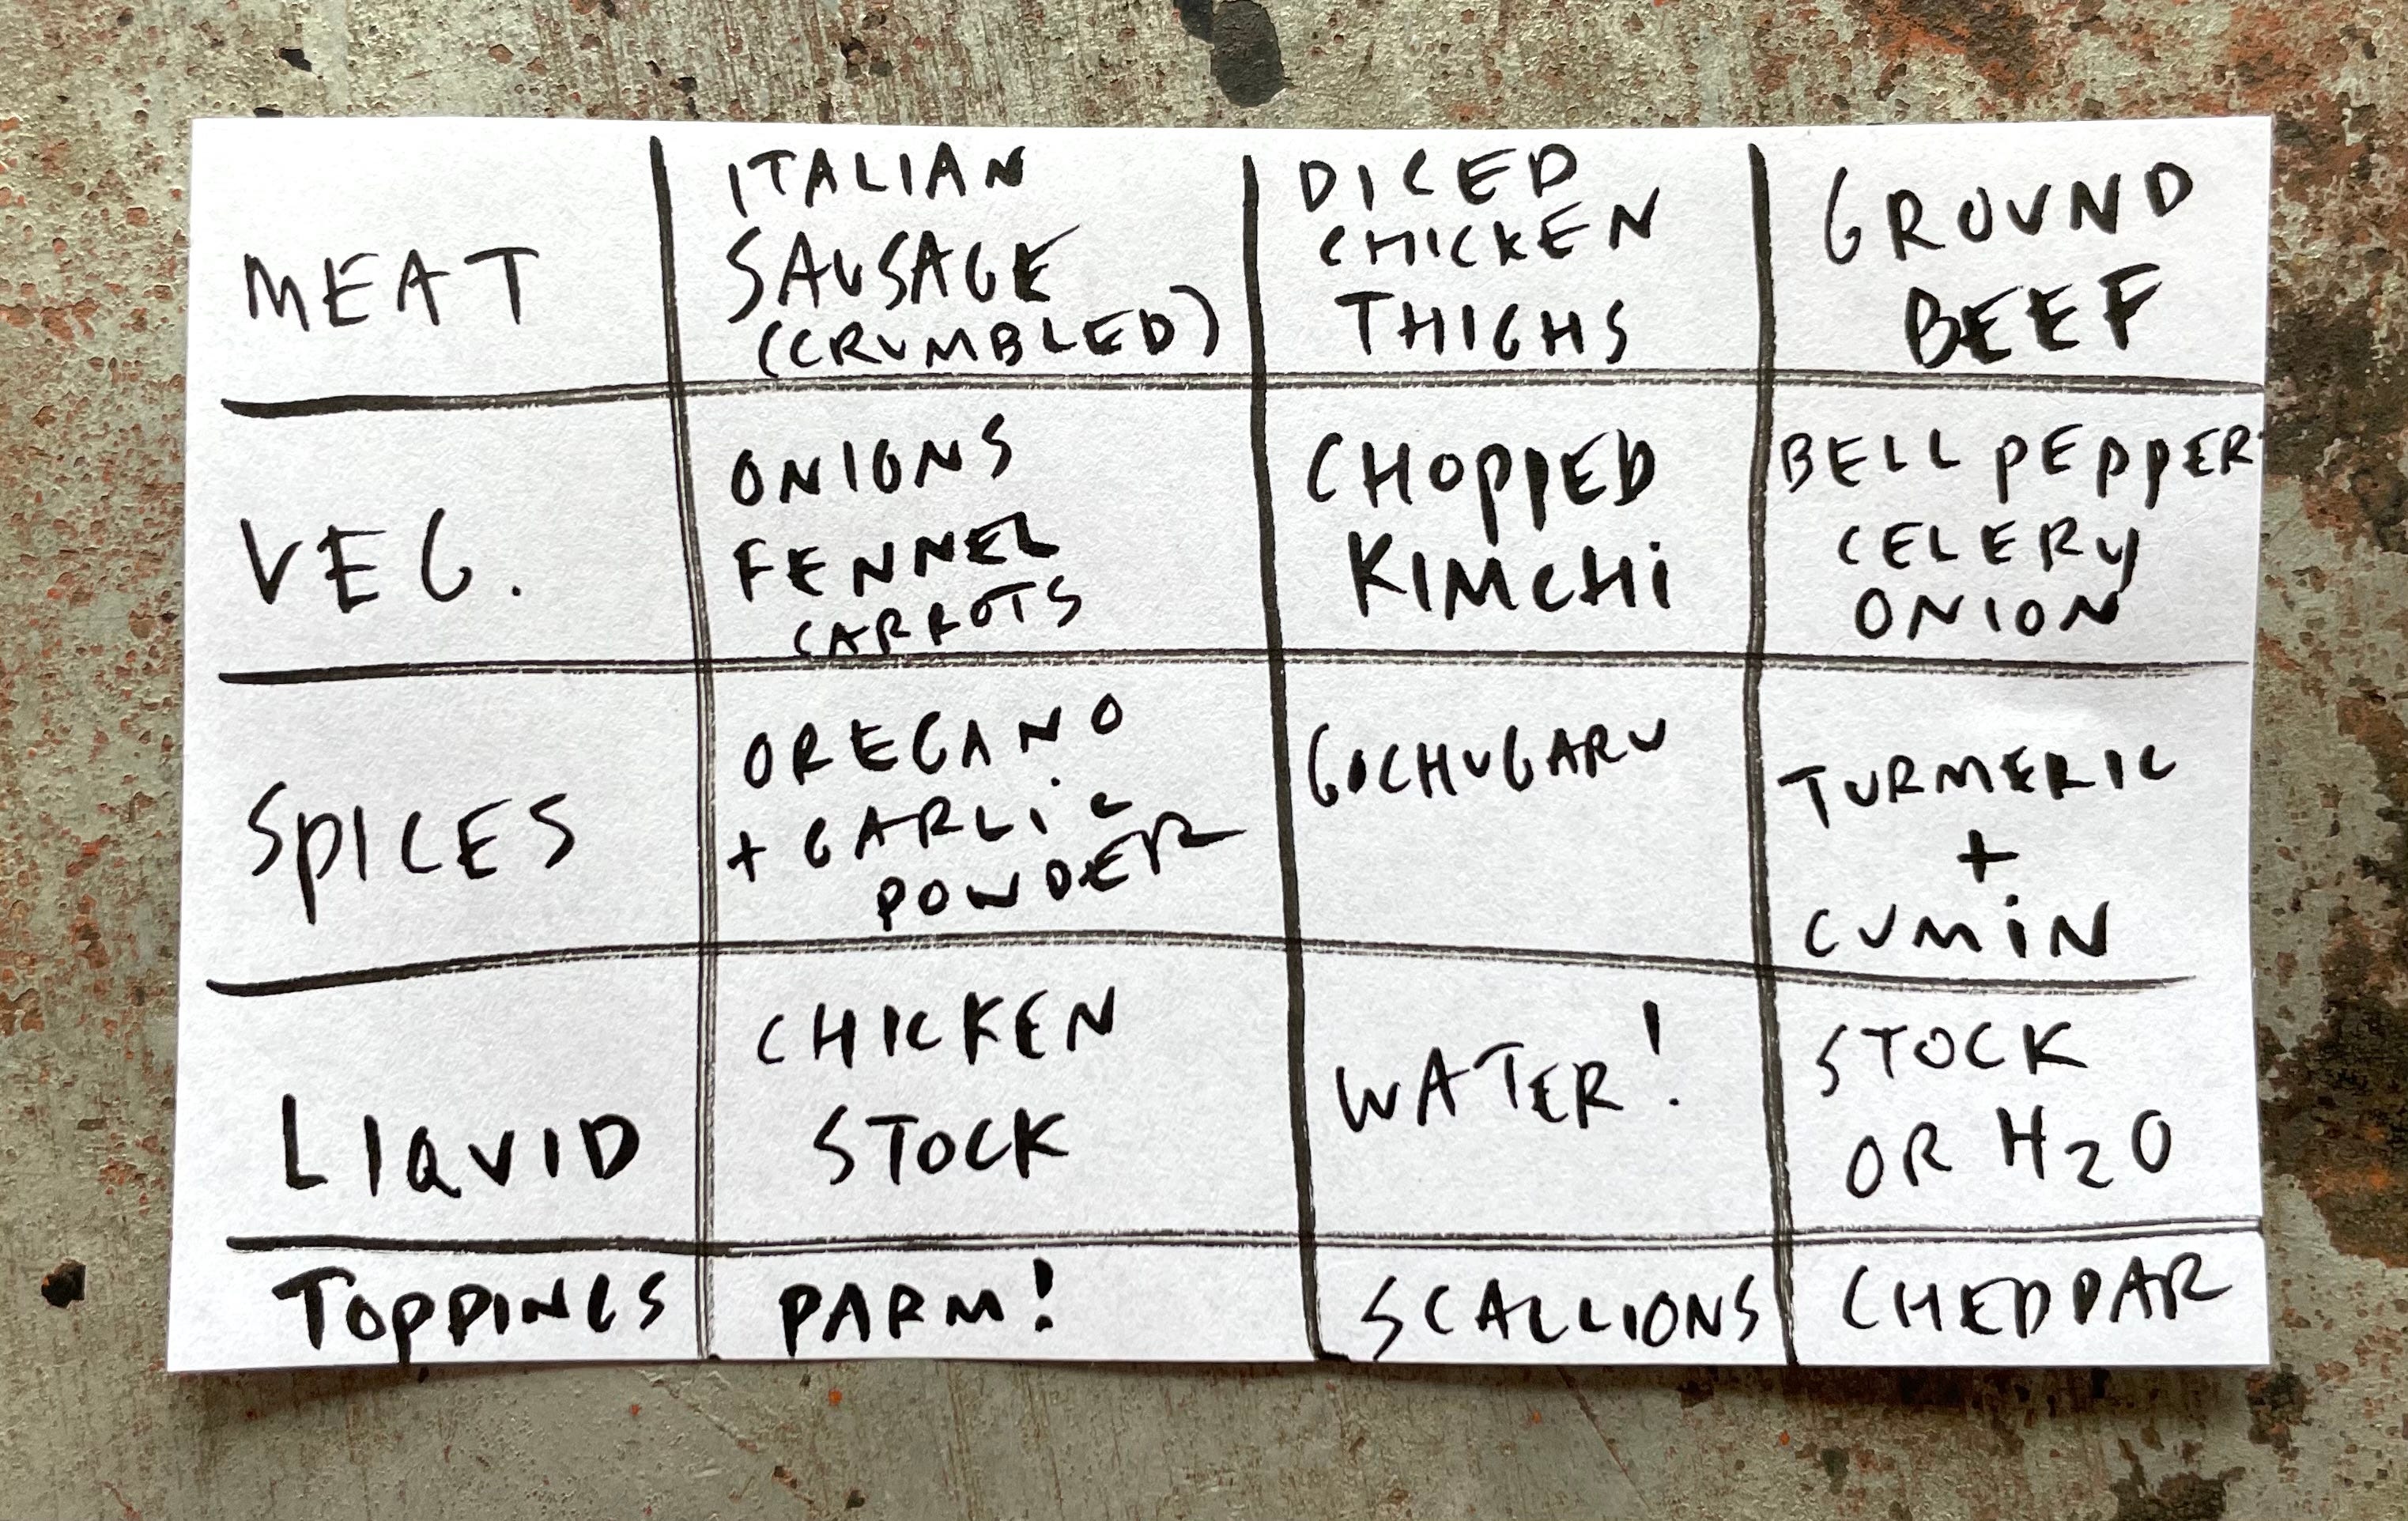 MEAT
ITALIAN
SAUSAGE
(CRUMBLED)
DICED
CHICKEN
THIGHS
GROUND
BEEF
VEG.
ONIONS
FENNEL
CARROTS
CHOPPED
KIMCHi
BELL PEPPER
CELERY
ONION
SPICES
OREGANO
+ GARLiC
POWDER
GOCHUGARU
TURMERIC
+
CUMiN
LIQUID
CHICKEN
STOCK
WATER!
STOCK
OR H2O
TOPPINGS
PARM!
SCALLIONS
CHEDDAR